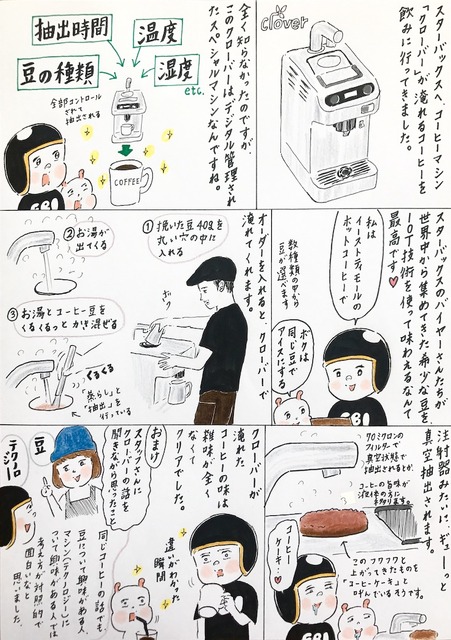 スターバックスへ、コーヒーマシン
「クローバー」が淹れるコーヒーを
飲みに行ってきました。
clover
全く知らなかったのですが、
このクローバーはデジタル管理され
たスペシャルマシンなんですね。
抽出時間
温度
豆の種類
湿度
etc.
全部コントロール
されて
抽出される
COFFEE
GBI
スターバックスのバイヤーさんたちが
世界中から集めてきた希少な豆を
IOT技術を使って味わえるなんて
最高です♥
私は
イーストティモールの
ホットコーヒーで
数種類の中から
豆が選べます
ボクは
同じ豆で
アイスにする
GBI
オーダーを入れると、クローバーで
淹れてくれます。
①挽いた豆40gを
丸い穴の中に
入れる
②お湯が
出てくる
③お湯とコーヒー豆を
くるくるっと かき混ぜる
くるくる
「蒸らし」と
「抽出」を
行っている
注射器みたいに、ギューっと
真空抽出されます。
70ミクロンの
フィルターで
真空状態で
抽出されるとか。
コーヒーの旨味が
液体の方に
移ります。
このフワフワと
上がってきたものを
「コーヒーケーキ」と
呼んでいるそうです。
コーヒー
ケーキ♥
クローバーが
淹れた
コーヒーの味は
雑味が全く
なくて
クリアでした。
違いがわかった
瞬間
おまけ
スタッフさんに
クローバーの話を
聞きながら思ったこと
豆
テクノロジー
同じコーヒーの話でも
豆について興味がある人
マシン(テクノロジー)に
ついて興味がある人では
考え方が対照的で
面白いなと
思いました。